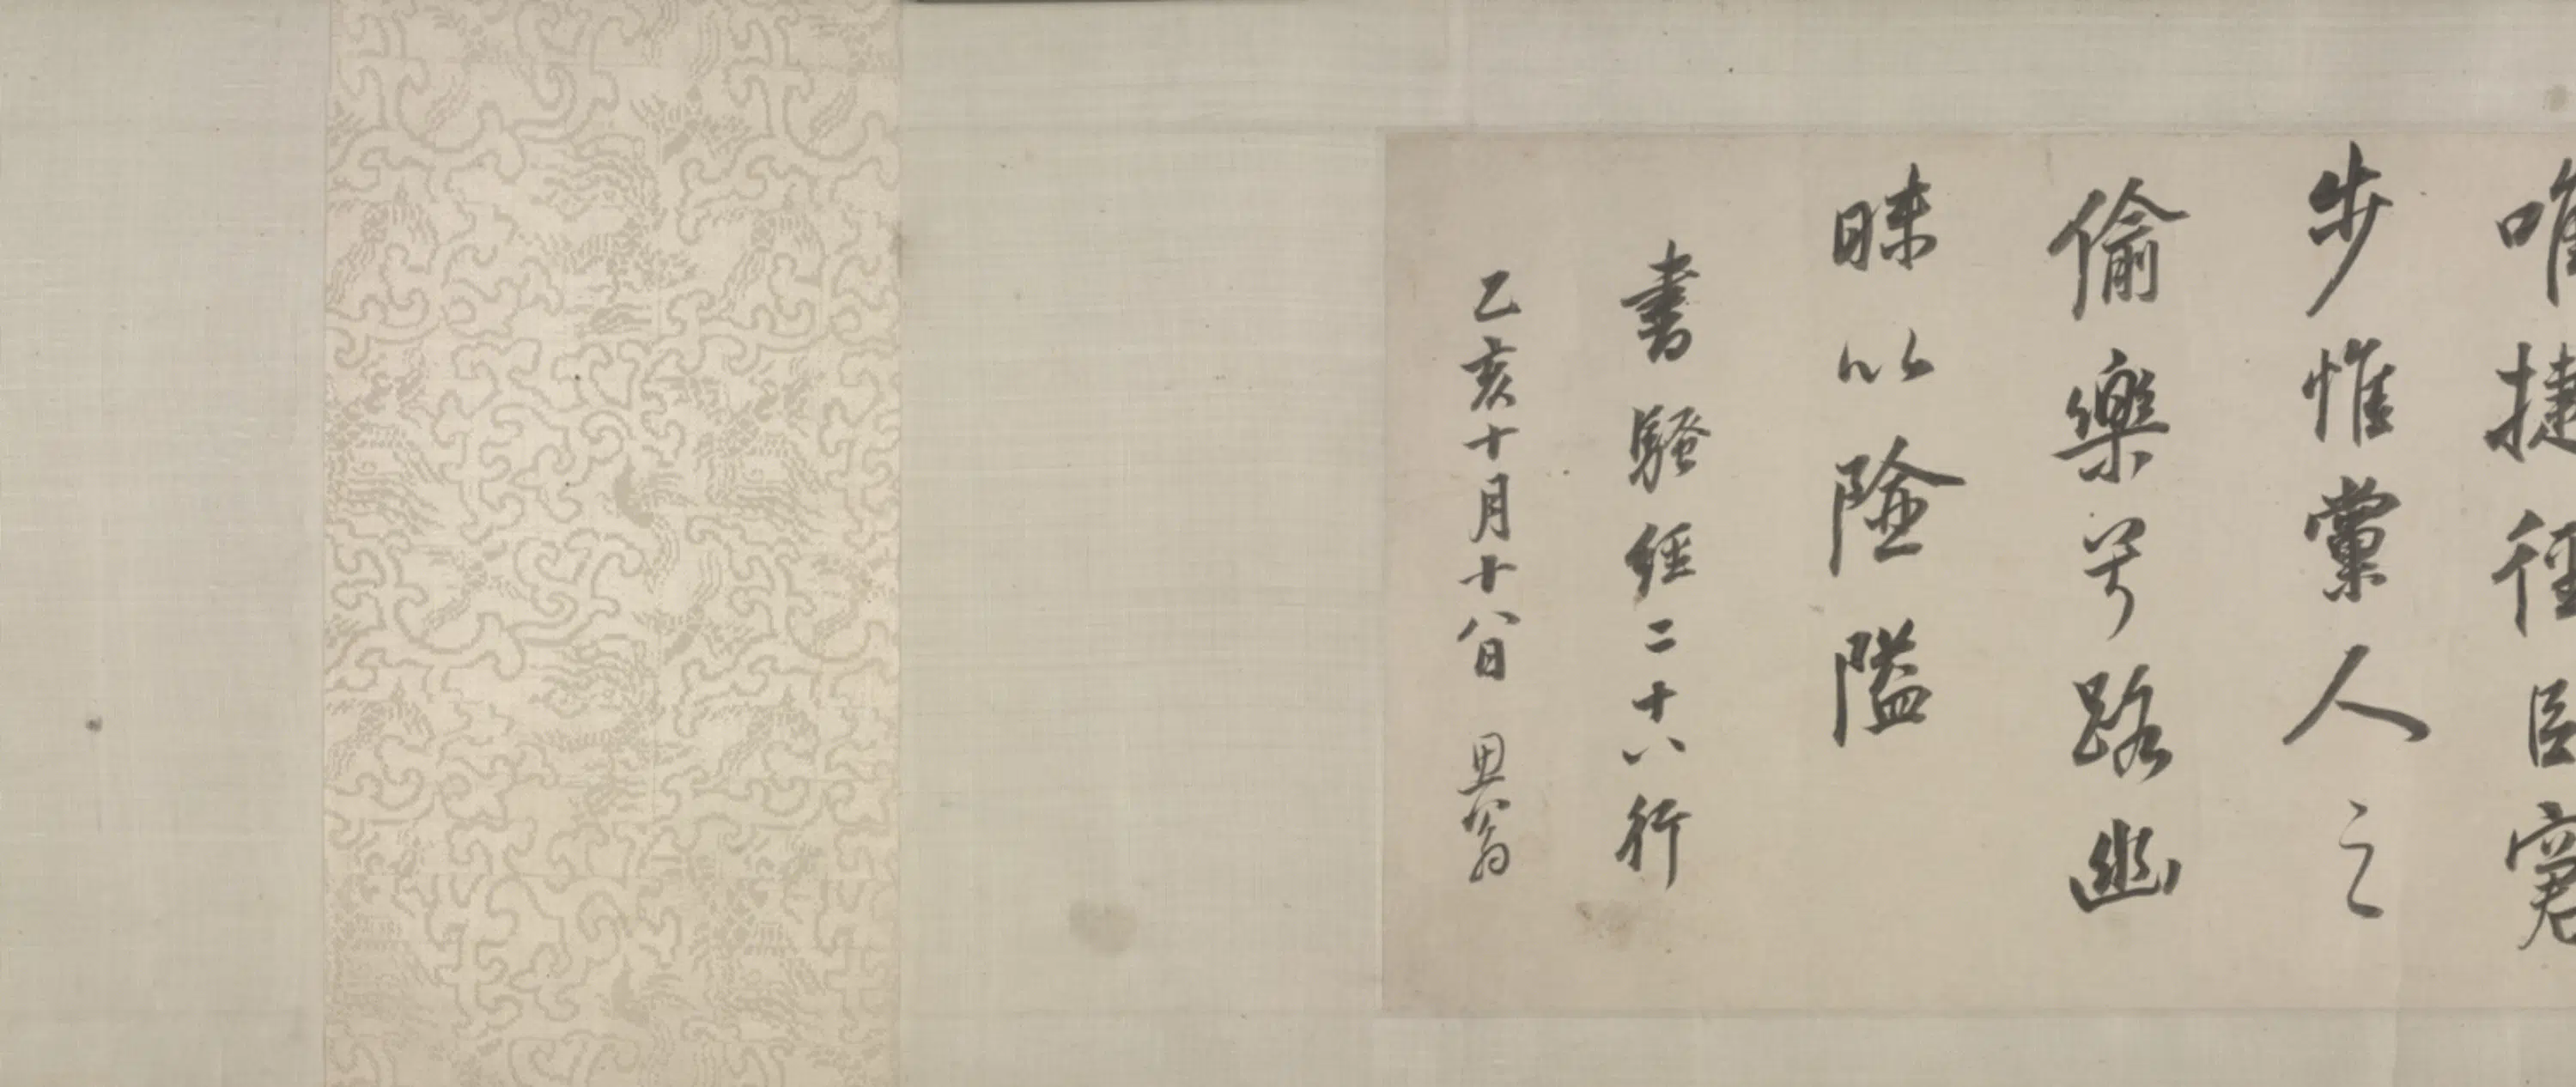 唯捷徑㠯窘
步惟黨人之
偷樂兮路幽
昧以險隘
書騷經二十八行
乙亥十月十八日 思翁